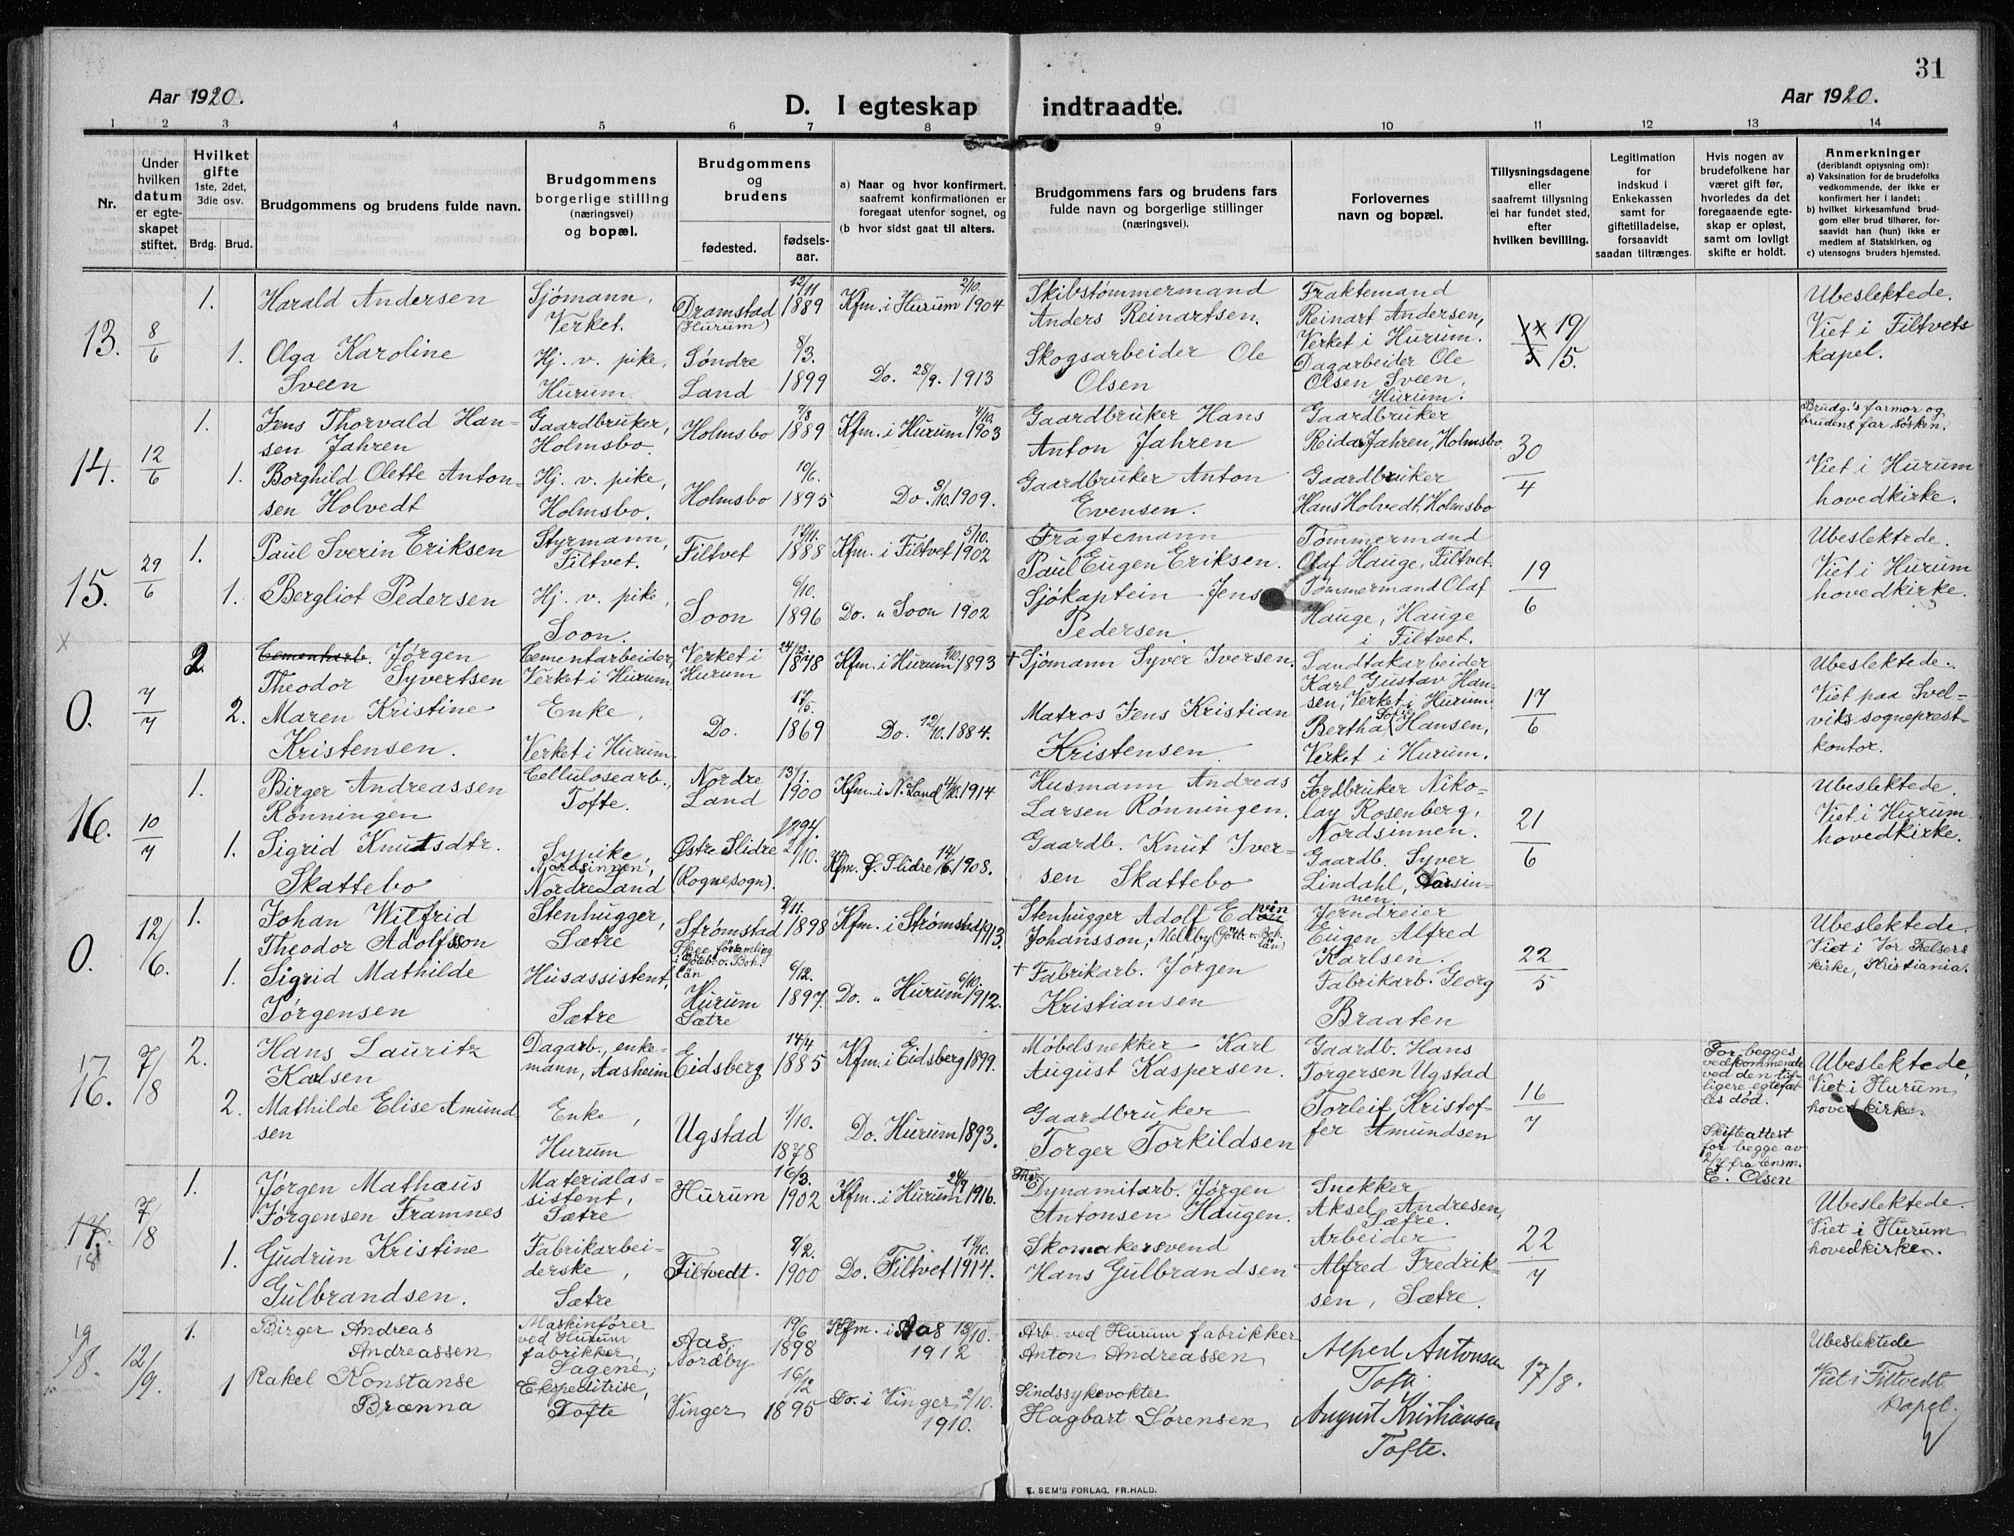 31
Aar 1920.
D. I egteskap indtraadte.
Aar 1920.
1 2 3 4 5 6 7 8 9 10 11 12 13 14
Nr.
Under hvilken datum er egteskapet stiftet.
Hvilket gifte 1ste, 2det, 3die osv.
Brdg. Brud.
Brudgommens og brudens fulde navn.
Brudgommens borgerlige stilling (næringsvei) og bopæl.
Brudgommens og brudens
fødested. fødselsaar.
a) Naar og hvor konfirmert, saafremt konfirmationen er foregaat utenfor sognet, og
(b hvor sidst gaat til alters.
Brudgommens fars og brudens fars fulde navn og borgerlige stillinger (næringsvei).
Forlovernes navn og bopæl.
Tillysningsdagene eller saafremt tillysning ei har fundet sted, efter hvilken bevilling.
Legitimation for indskud i Enkekassen samt for giftetilladelse, forsaavidt saadan tiltrænges.
Hvis nogen av brudefolkene har været gift før, hvorledes da det foregaaende egteskap er opløst, samt om lovligt skifte er holdt.
Anmerkninger (deriblandt oplysning om):
a) Vaksination for de brudefolks vedkommende, der ikke er konfirmert her i landet;
b) hvilket kirkesamfund brudgom eller brud tilhører, forsaavidt han (hun) ikke er medlem av Statskirken, og
c) utensogns bruders hjemsted.
13. 8/6
1. Harald Andersen
Sjømann, Verket.
Dramstad (Hurum)
12/11 1889
Kfm. i Hurum 2/10 1904
Skibstømmermand Anders Reinartsen.
Fraktemand Reinart Andersen, Verket i Hurum.
19/5.
Ubeslektede.
Viet i Filtvets kapel.
1. Olga Karoline Sveen
Hj. v. pike, Hurum.
Søndre Land
8/3. 1899
Do. 28/9. 1913
Skogsarbeider Ole Olsen
Dagarbeider Ole Olsen Sveen, Hurum.
14. 12/6
1. Jens Thorvald Hansen Jahren
Gaardbruker, Holmsbo.
Holmsbo
9/8 1889
Kfm. i Hurum 4/10. 1903
Gaardbruker Hans Anton Jahren
Gaardbruker Reidar Jahren, Holmsbo
30/4
Brudg.'s farmor og brudens far søsken.
Viet i Hurum hovedkirke.
1. Borghild Olette Antonsen Holvedt
Hj. v. pike, Holmsbo.
Holmsbo
10/6. 1895
Do. 3/10. 1909.
Gaardbruker Anton Evensen.
Gaardbruker Hans Holvedt, Holmsbo
15. 29/6
1. Paul Sverin Eriksen
Styrmann, Filtvet.
Filtvet
1888
Kfm. i Filtvet 5/10. 1902
Fragtemann Paul Eugen Eriksen.
Tømmermand Olaf Hauge, Filtvet.
19/6
Ubeslektede.
Viet i Hurum hovedkirke.
1. Bergliot Pedersen
Hj. v. pike, Soon.
Soon
6/10. 1896
Do. " Soon 1902
Sjøkaptein Jens Pedersen.
Tømmermand Olaf Hauge, Hauge i Filtvet.
x
0. 7/7
2 Cementarb. Jørgen Theodor Syvertsen
Cementarbeider, Verket i Hurum
Verket i Hurum
24/12. 1878
Kfm. i Hurum 1893
+ Sjømann Syver Iversen.
Sandtakarbeider Karl Gustav Hansen, Verket i Hurum.
17/6
Ubeslektede.
Viet paa Svelviks sogneprestkontor.
2. Maren Kristine Kristensen.
Enke, Verket i Hurum.
Do.
17/5. 1869
Do. 12/10. 1884.
Matros Jens Kristian Kristensen.
Bertha Sofie Hansen, Verket i Hurum.
16. 10/7
1. Birger Andreassen Rønningen
Cellulosearb., Tofte.
Nordre Land
13/1. 1900
Kfm. i N. Land 1914
Husmann Andreas Larsen Rønningen.
Jordbruker Nikolay Rosenberg, Nordsinnen.
21/6
Ubeslektede.
Viet i Hurum hovedkirke.
1. Sigrid Knutsdtr. Skattebo
Sypike, Nordsinnen, Nordre Land
Østre Slidre (Rognesogn).
1894. 21/10.
Kfm. Ø. Slidre 14/6 1908.
Gaardb. Knut Iversen Skattebo
Gaardb. Syver Lindahl, Norsinnen.
0. 12/6
1. Johan Wilfrid Theodor Adolfsson
Stenhugger, Sætre
Strømstad Skee församling i Göteb. o. Boh. län
9/11. 1898
Kfm. i Strømstad 1913.
Stenhugger Adolf Edvin Johansson, Melkby (Gött. o. Boh. län)
Jerndreier Eugen Alfred Karlsen.
22/5
Ubeslektede.
Viet i Vor Frelsers kirke, Kristiania.
1. Sigrid Mathilde Jørgensen
Husassistent, Sætre
Hurum Sætre
6/12. 1897.
Do. " Hurum 6/10. 1912.
+ Fabrikarb. Jørgen Kristiansen
Fabrikarb. Georg Braaten
17 16. 7/8
2. Hans Lauritz Karlsen
Dagarb., enkemann, Aasheim
Eidsberg
14/4 1885
Kfm. i Eidsberg 1899.
Møbelsnekker Karl August Kaspersen.
Gaardb. Hans Torgersen Ugstad
16/7
For begges vedkommende ved den tidligere egtefæles død.
Skifteattest for begge av 2/7 fra lensm. E. Olsen
Ubeslektede,
Viet i Hurum hovedkirke.
2. Mathilde Elise Amundsen
Enke, Hurum
Ugstad
1/10. 1878
Do. Hurum 1893.
Gaardbruker Torger Torkildsen
Torleif Kristoffer Amundsen
17. 18 7/8
1. Jørgen Mathæus Jørgensen Framnes
Materialassistent, Sætre
Hurum
16/3. 1902
Kfm. i Hurum 24/9 1916.
Dynamitarb. Jørgen Antonsen Haugen.
Snekker Aksel Andresen, Sætre.
22/7
Ubeslektede.
Viet i Hurum hovedkirke.
1. Gudrun Kristine Gulbrandsen.
Fabrikarbeiderske, Sætre
Filtvedt.
9/2. 1900
Do. Filtvet 1914.
Skomakersvend Hans Gulbrandsen
Arbeider Alfred Fredriksen, Sætre.
19 18. 12/9
1. Birger Andreas Andreassen
Maskinfører ved Hurum fabrikker Sagene;
Aas, Nordby
19/6 1898
Kfm. i Aas 13/10. 1912
Arb. ved Hurum fabrikker Anton Andreassen
Alfred Antonsen Tofte
17/8.
Ubeslektede
Viet i Filtvedt Kapel.
1 Rakel Konstanse Brænna
Ekspeditrise, Tofte
Vinger
16/12 1895
Do. i Vinger 2/10. 1910.
Sindssykevokter Hagbart Sørensen
August Kristiansen Tofte.
E. SEM'S FORLAG, FR.HALD.